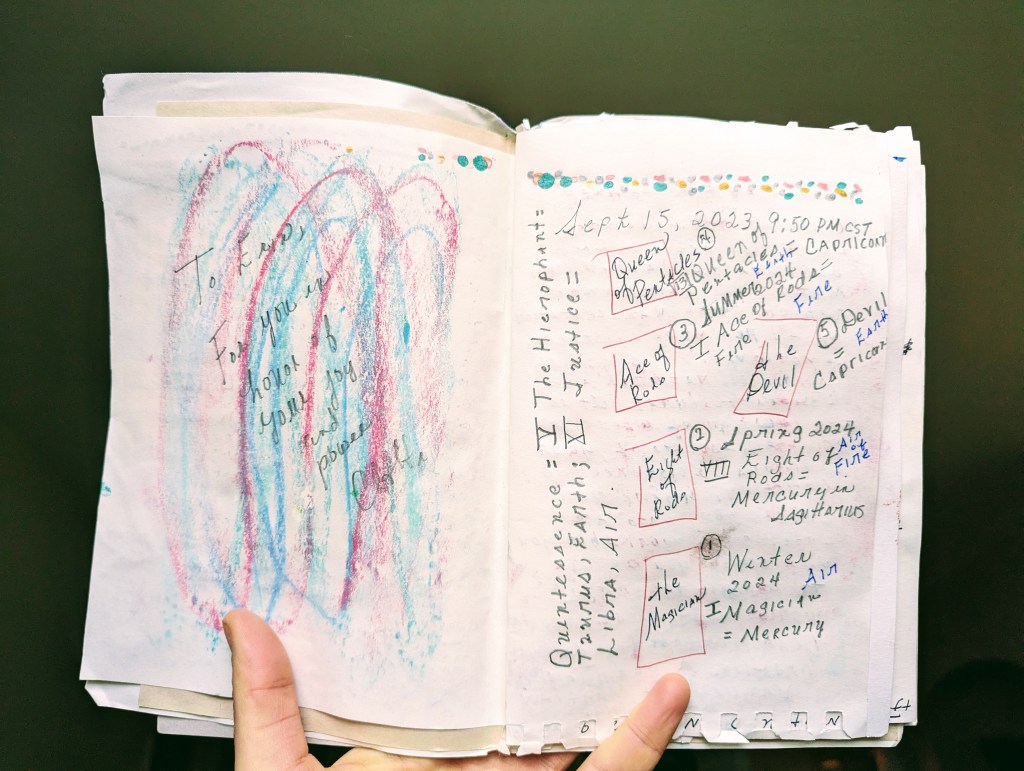 To
For you in
honor of
your joy
and
power
Sept 15, 2023, 9:50 PM CST
Queen
of Pentacles
④ Queen of
Pentacles =
CAPRICORN
Earth
Summer 2024
③ I Ace of Rods =
Fire
Fire
Ace of
Rods
the
Devil
⑤ Devil
Earth
=
Capricorn
Eight
of
Rods
② Spring 2024
VIII Eight of
Rods =
Air
of
Fire
Mercury in
Sagittarius
the
Magician
① Winter
2024
Air
I Magician
= Mercury
Quintessence = V The Hierophant =
Taurus, Earth; IX Justice =
Libra, Air.